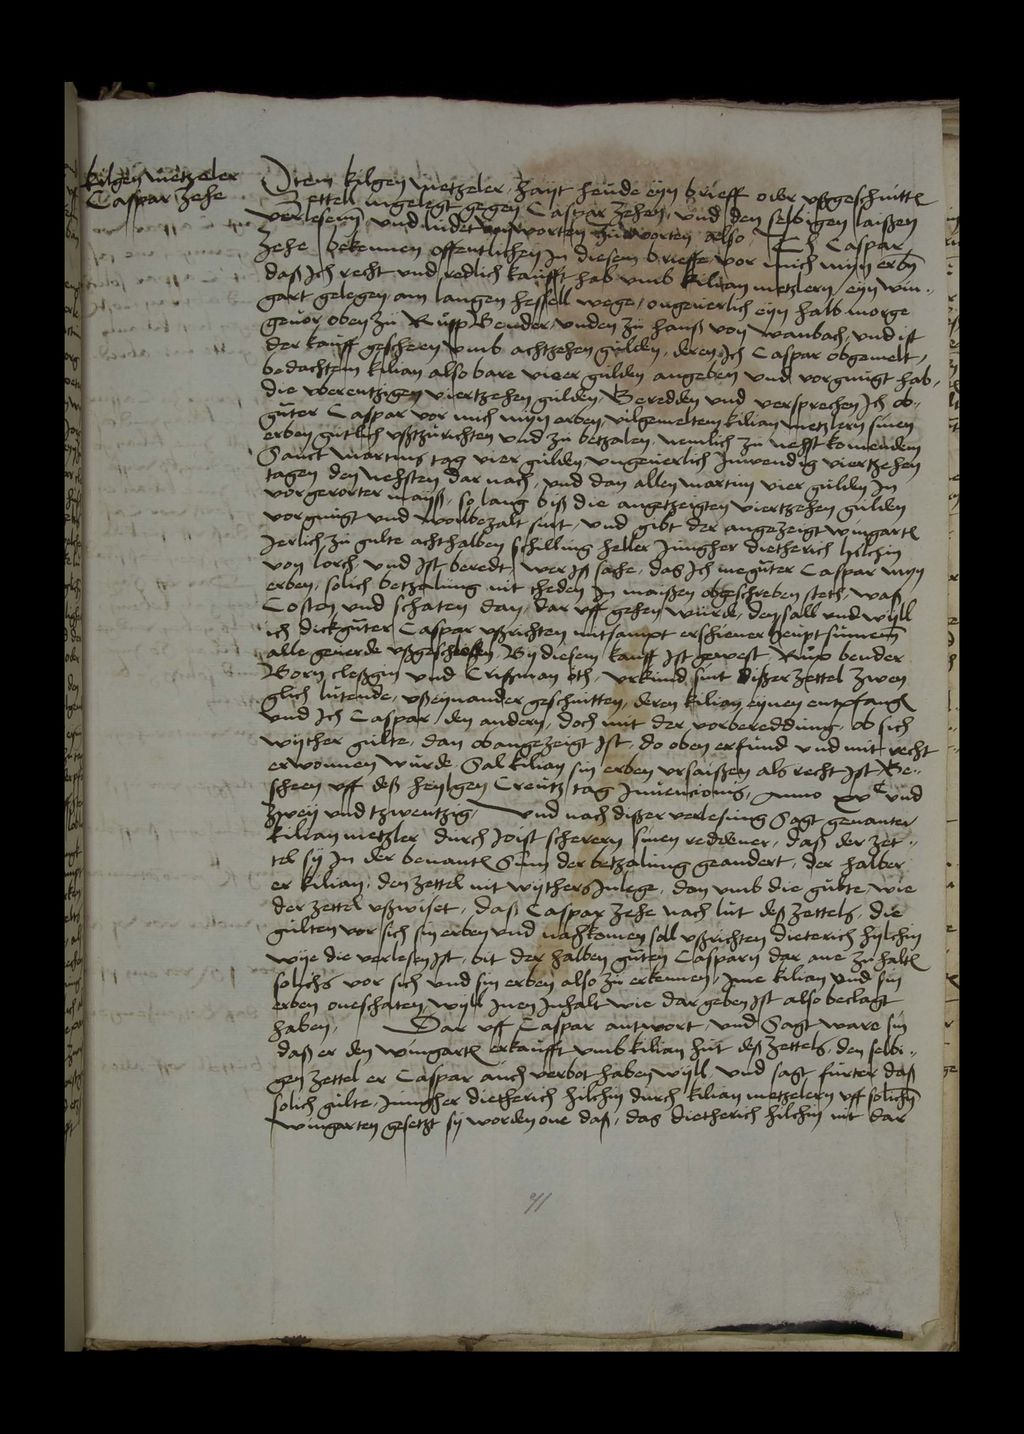 Kilgen Metzeler
Caspar Zehe
Item Kilgen Metzeler hayt heude eyn brieff ader ußgeschnitten
Zettel ingelegt gegen Caspar Zehen, und den selbigen laißen
verlesenn und ludet von worten zu worten also, Ich Caspar
Zehe bekennen offentlichen in diesem brieffe vor mich myn erbenn
daß ich recht und redlich kaufft hab umb Kilian metzlern eyn win-
gart gelegen am langen hessell wege, ongeuerlich eyn halb morge
geuor oben zu Rupp Bender, unden zu hanß von wanbach, und ist
der kauff gescheen umb achtzehen gulden, deren ich Caspar obgemelt,
bedachtem kilian also bare vieer gulden angeben und vorgnugt hab,
die uberentzigen viertzehen gulden, Beredden und versprechen ich ob-
guter Caspar vor mich myn erben, vilgemeltem kilian metzlern sinen
erben gutlich ußzurichten und zu betzalen, nemlich zu nehst komenden
Sanct martins tag vier gulden ungeuerlich inwendig viertzehen
tagen den nehsten dar nach, und dan allen martini vier gulden in
vorgerorter maiß, so lang biß die angetzeigten viertzehen gulden
vorgnugt und wolbezalt sint, und gibt der angezeigt wingarten
Jerlich zu gulte achthalben schilling heller Jungher dietherich hilchin
von lorch, und ist beredt, wer iß sache, das ich meguter Caspar myn
erben, solich betzalung nit theden in maißen obgeschreben stet, waß
Costen und schaten dan, dar uff gehen wurde, den sall und wyll
ich dickguter Caspar ußrichten mitsampt erschiener heuptsummen
alle geuerde ußgeschloissen, By diesem kauff ist gewest Rupp bender
Born cleßgin und Crißman oth, urkund sint dißer Zettel zwen
glich lutende, ußeynander geschnitten, deren kilian eynen entpfangen
und ich Caspar den andern, doch mit der vorbereddung, ob sich
wyther gulte, dan obangezeigt ist, do oben erfund und mit recht
erwonnen wurde, Sal kilian sin erben ursaißen als recht ist, Ge-
scheen uff deß heyligen Creutz tag Inuencionis, Anno xvc und
zweij und tzwentzig, Und nach dißer verlesung Sagt genanter
kilian metzler durch Joist scherern sinen reddener, daß der Zet-
tel sy in der benanten Sum der betzalung geandert, der halber
er kilian, den Zettel nit wythers inlege, dan umb die gulte wie
der Zettel ußwiset, daß Caspar Zehe nach lut deß Zettels, die
gulten vor sich sin erben und nachkomen sall ußrichten dieterich hylchin
wije die verlesen ist, bit der halben guten Casparn dar ane zu halten
solichs vor sich und sin erben also zu erkennen, ime kilian und sin
erben oneschaten, wyll inen inhalt wie dar geben ist also beclagt
haben, Dar uff Caspar antwort, und Sagt ware sin
daß er den wingarten erkaufft umb kilian lut deß Zettels, den selbi-
gen Zettel er Caspar auch verbot haben wyll, und sagt furter daß
solich gulte, Jungher dietherich hilchin durch kilian metzelern uff solichen
wingarten gesetzt sy worden one daß, das dietherich hilchin nit dar
41